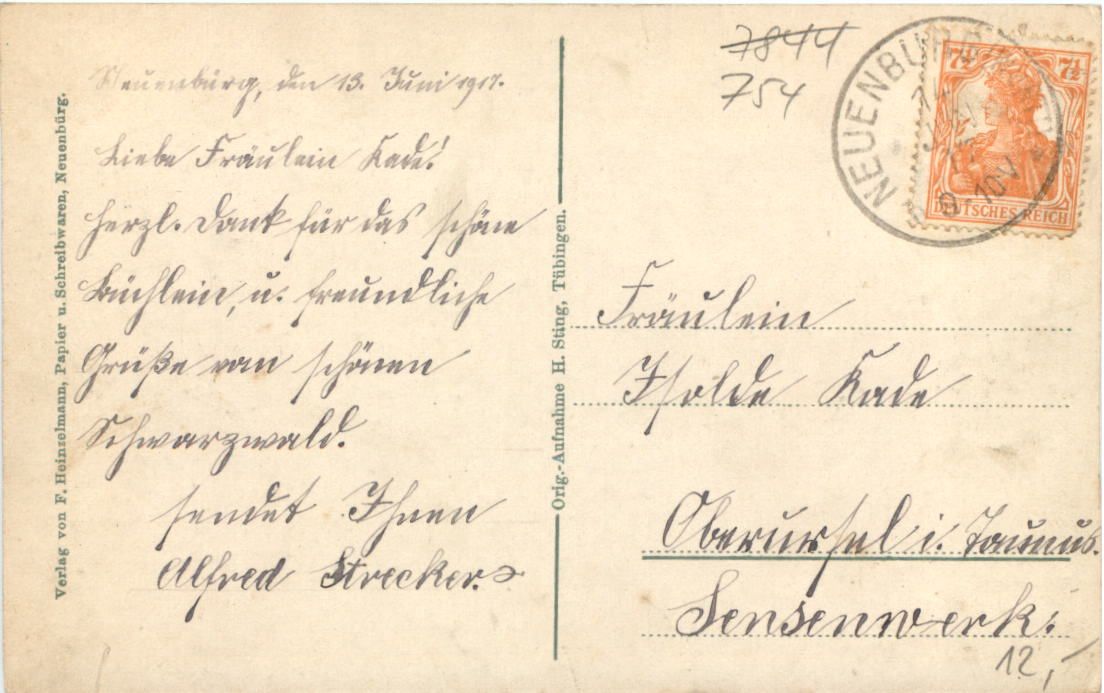 Neuenbürg, den 13. Juni 1917.
Liebe Fräulein Kade!
Herzl. Dank für das schöne
Büchlein, u. freundliche
Grüße vom schönen
Schwarzwald.
sendet Ihnen
Alfred Strecker.
Verlag von F. Heinzelmann, Papier u. Schreibwaren, Neuenbürg.
Orig.-Aufnahme H. Sting, Tübingen.
7844
754
NEUENBÜRG
14
JUN
17
9-10 V
7½ 7½
DEUTSCHES REICH
Fräulein
Isolde Kade
Oberursel i. Taunus.
Sensenwerk.
12,-